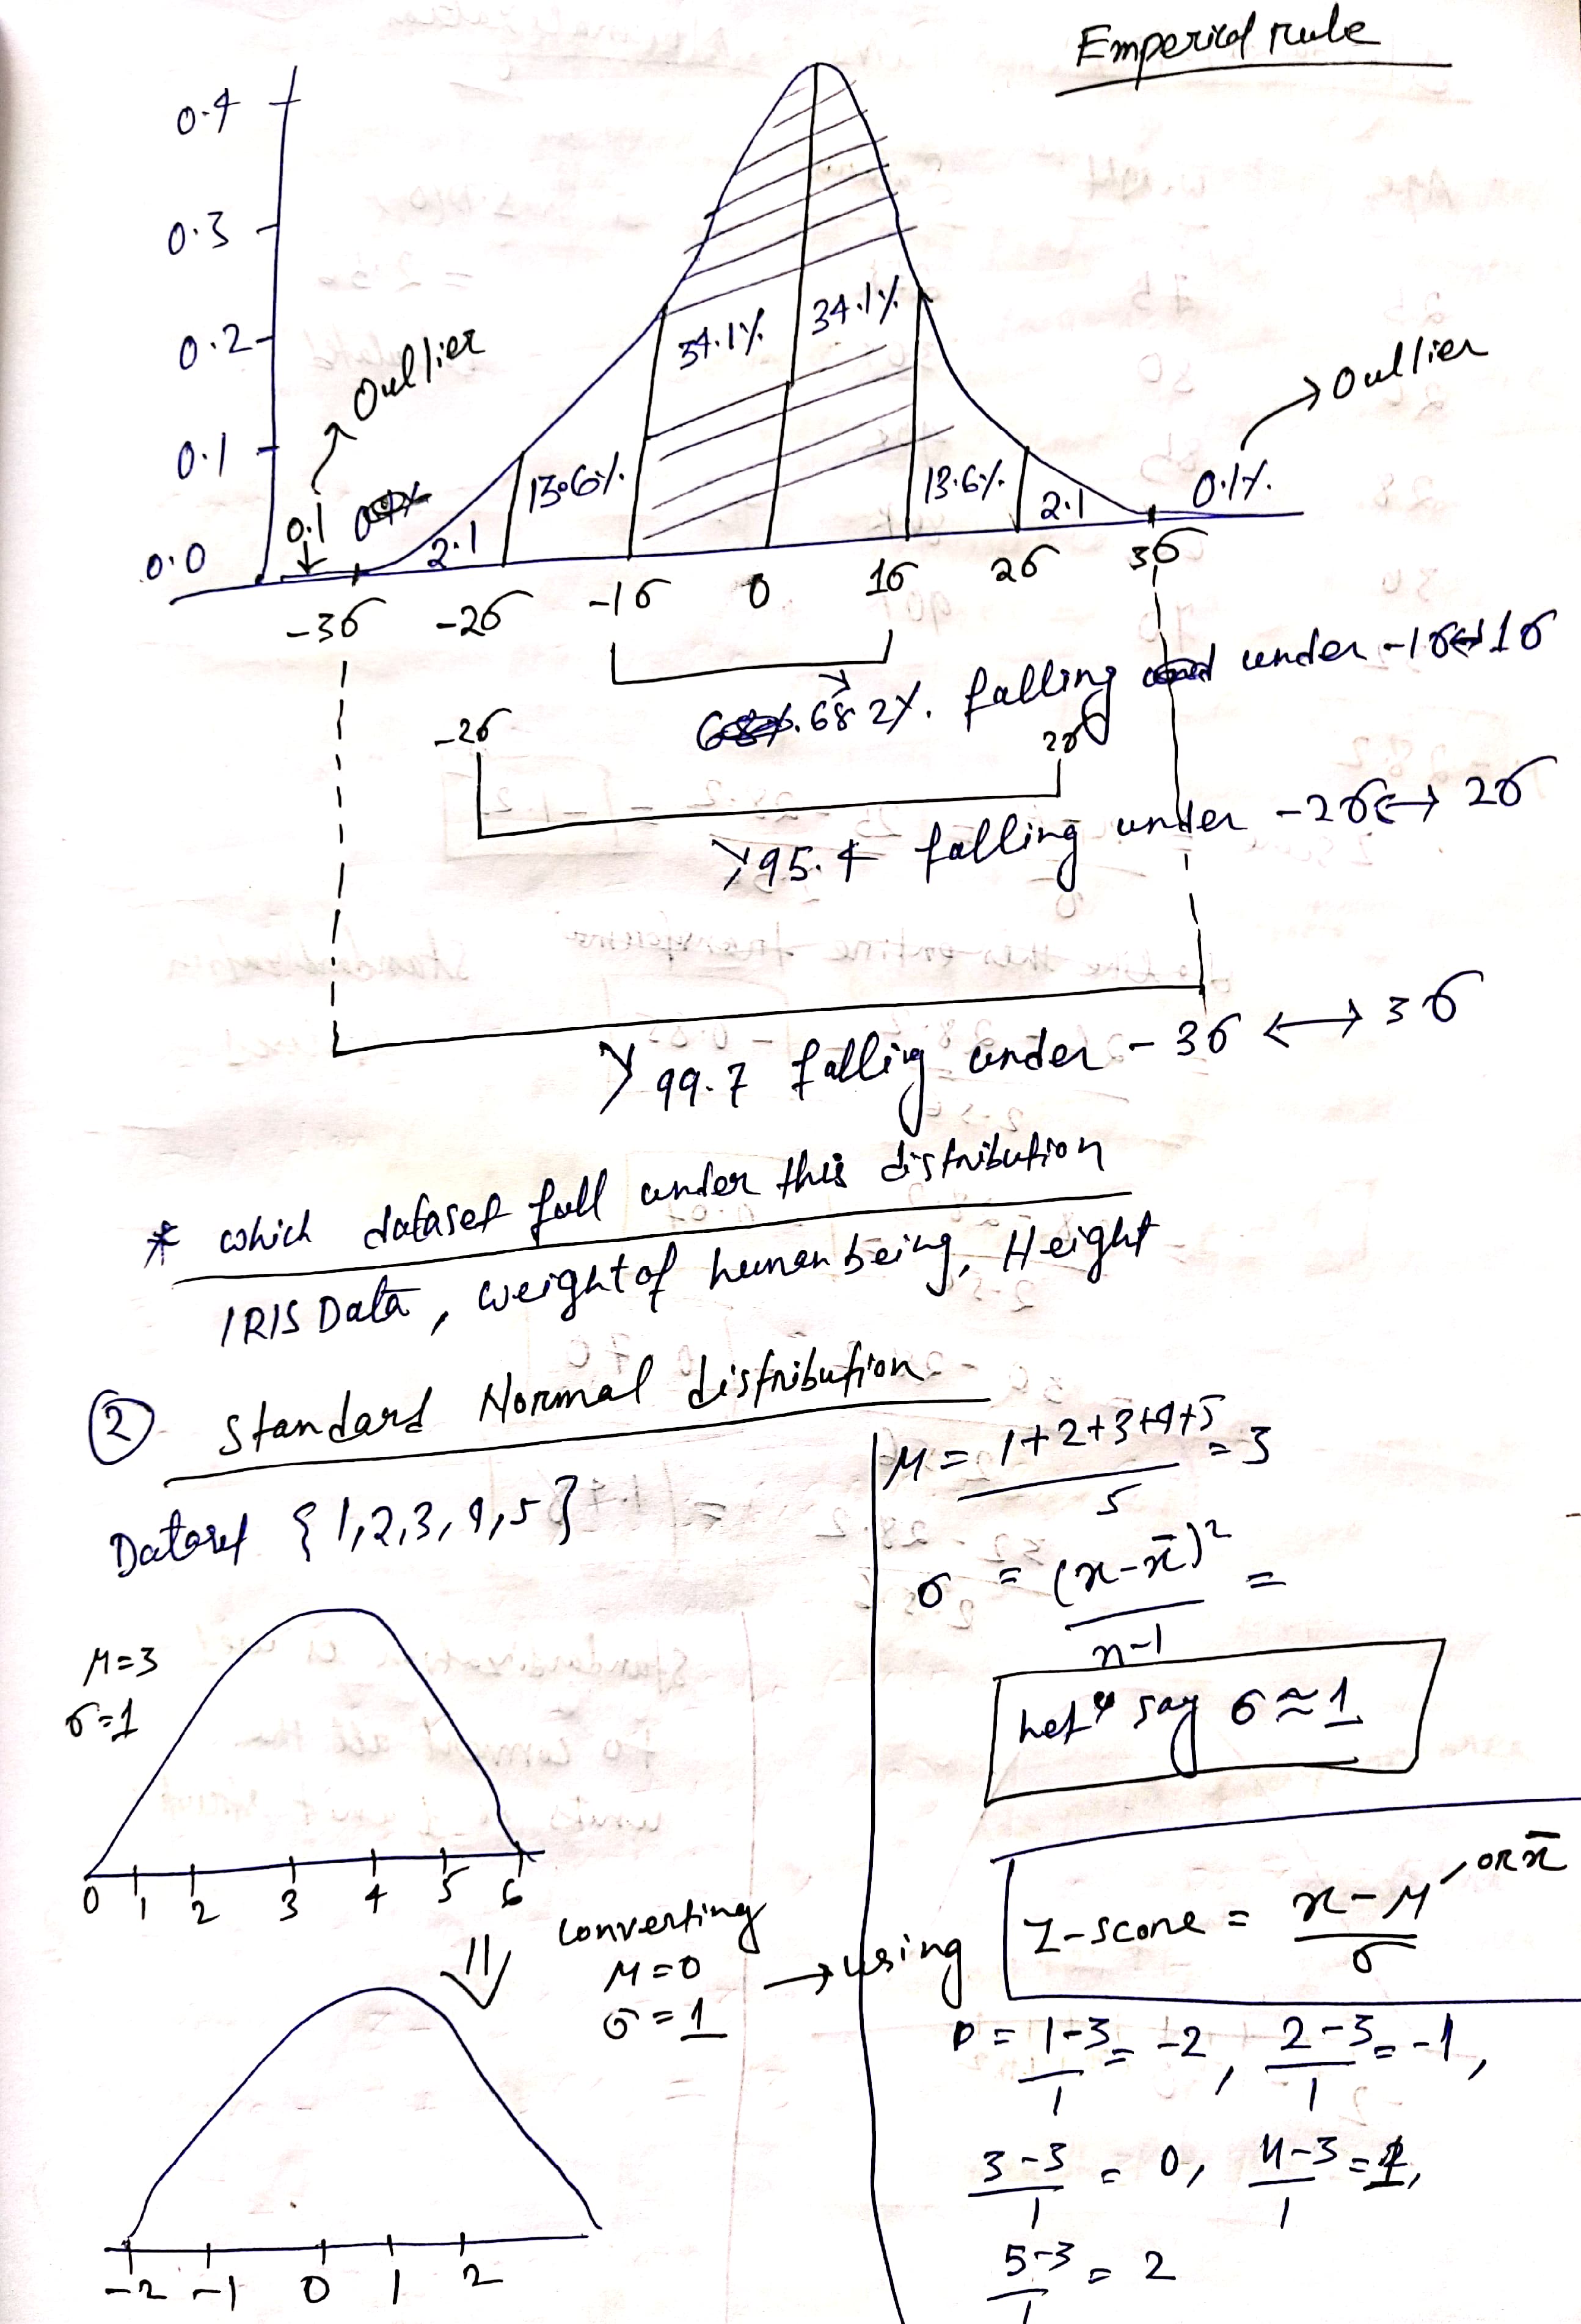 Emperical rule
0.4
0.3
0.2
0.1
0.0
Outlier
Outlier
34.1% 34.1%
0.1 2.1 13.6% 13.6% 2.1 0.1%
-3σ -2σ -1σ 0 1σ 2σ 3σ
68.2% falling under -1σ ↔ 1σ
-2σ 2σ
95.4 falling under -2σ ↔ 2σ
99.7 falling under -3σ ↔ 3σ
* which dataset fall under this distribution
IRIS Data, weight of human being, Height
② Standard Normal distribution
Dataset {1,2,3,4,5}
μ=3
σ=1
0 1 2 3 4 5 6
converting
μ=0
σ=1
→ using
-2 -1 0 1 2
μ = 1+2+3+4+5 / 5 = 3
σ = (x-x̄)² / n-1 =
let's say σ ≈ 1
Z-score = x-μ / σ or x̄
= 1-3 / 1 = -2, 2-3 / 1 = -1,
3-3 / 1 = 0, 4-3 / 1 = 1,
5-3 / 1 = 2